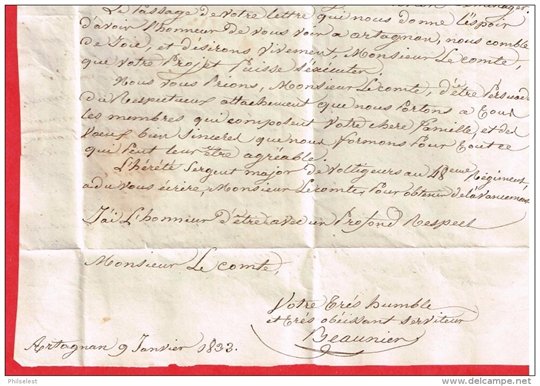 Le Passage de votre lettre qui nous donne l'Espoir
d'avoir l'honneur de vous voir a artagnan, nous comble
de Joie, et desirons vivement, Monsieur Le comte,
que votre Projet Puisse s'éxécuter.
Nous vous Prions, Monsieur Le comte, d'être Persuadé
du Respectueux attachement que nous Portons a tous
les membres qui composent votre chere famille, et des
vœux bien sinceres que nous formons Pour tout ce
qui Peut leur être agreable.
Sergent major de Voltigeurs au 48eme Régiment,
a du vous écrire, Monsieur Le comte, Pour obtenir de l'avancement
J'ai L'honneur d'être avec un Profond Respect
Monsieur Le comte,
Votre très humble
et très obéissant serviteur
Beaunier
Artagnan 9 Janvier 1833.
Philselest
delcampe.net